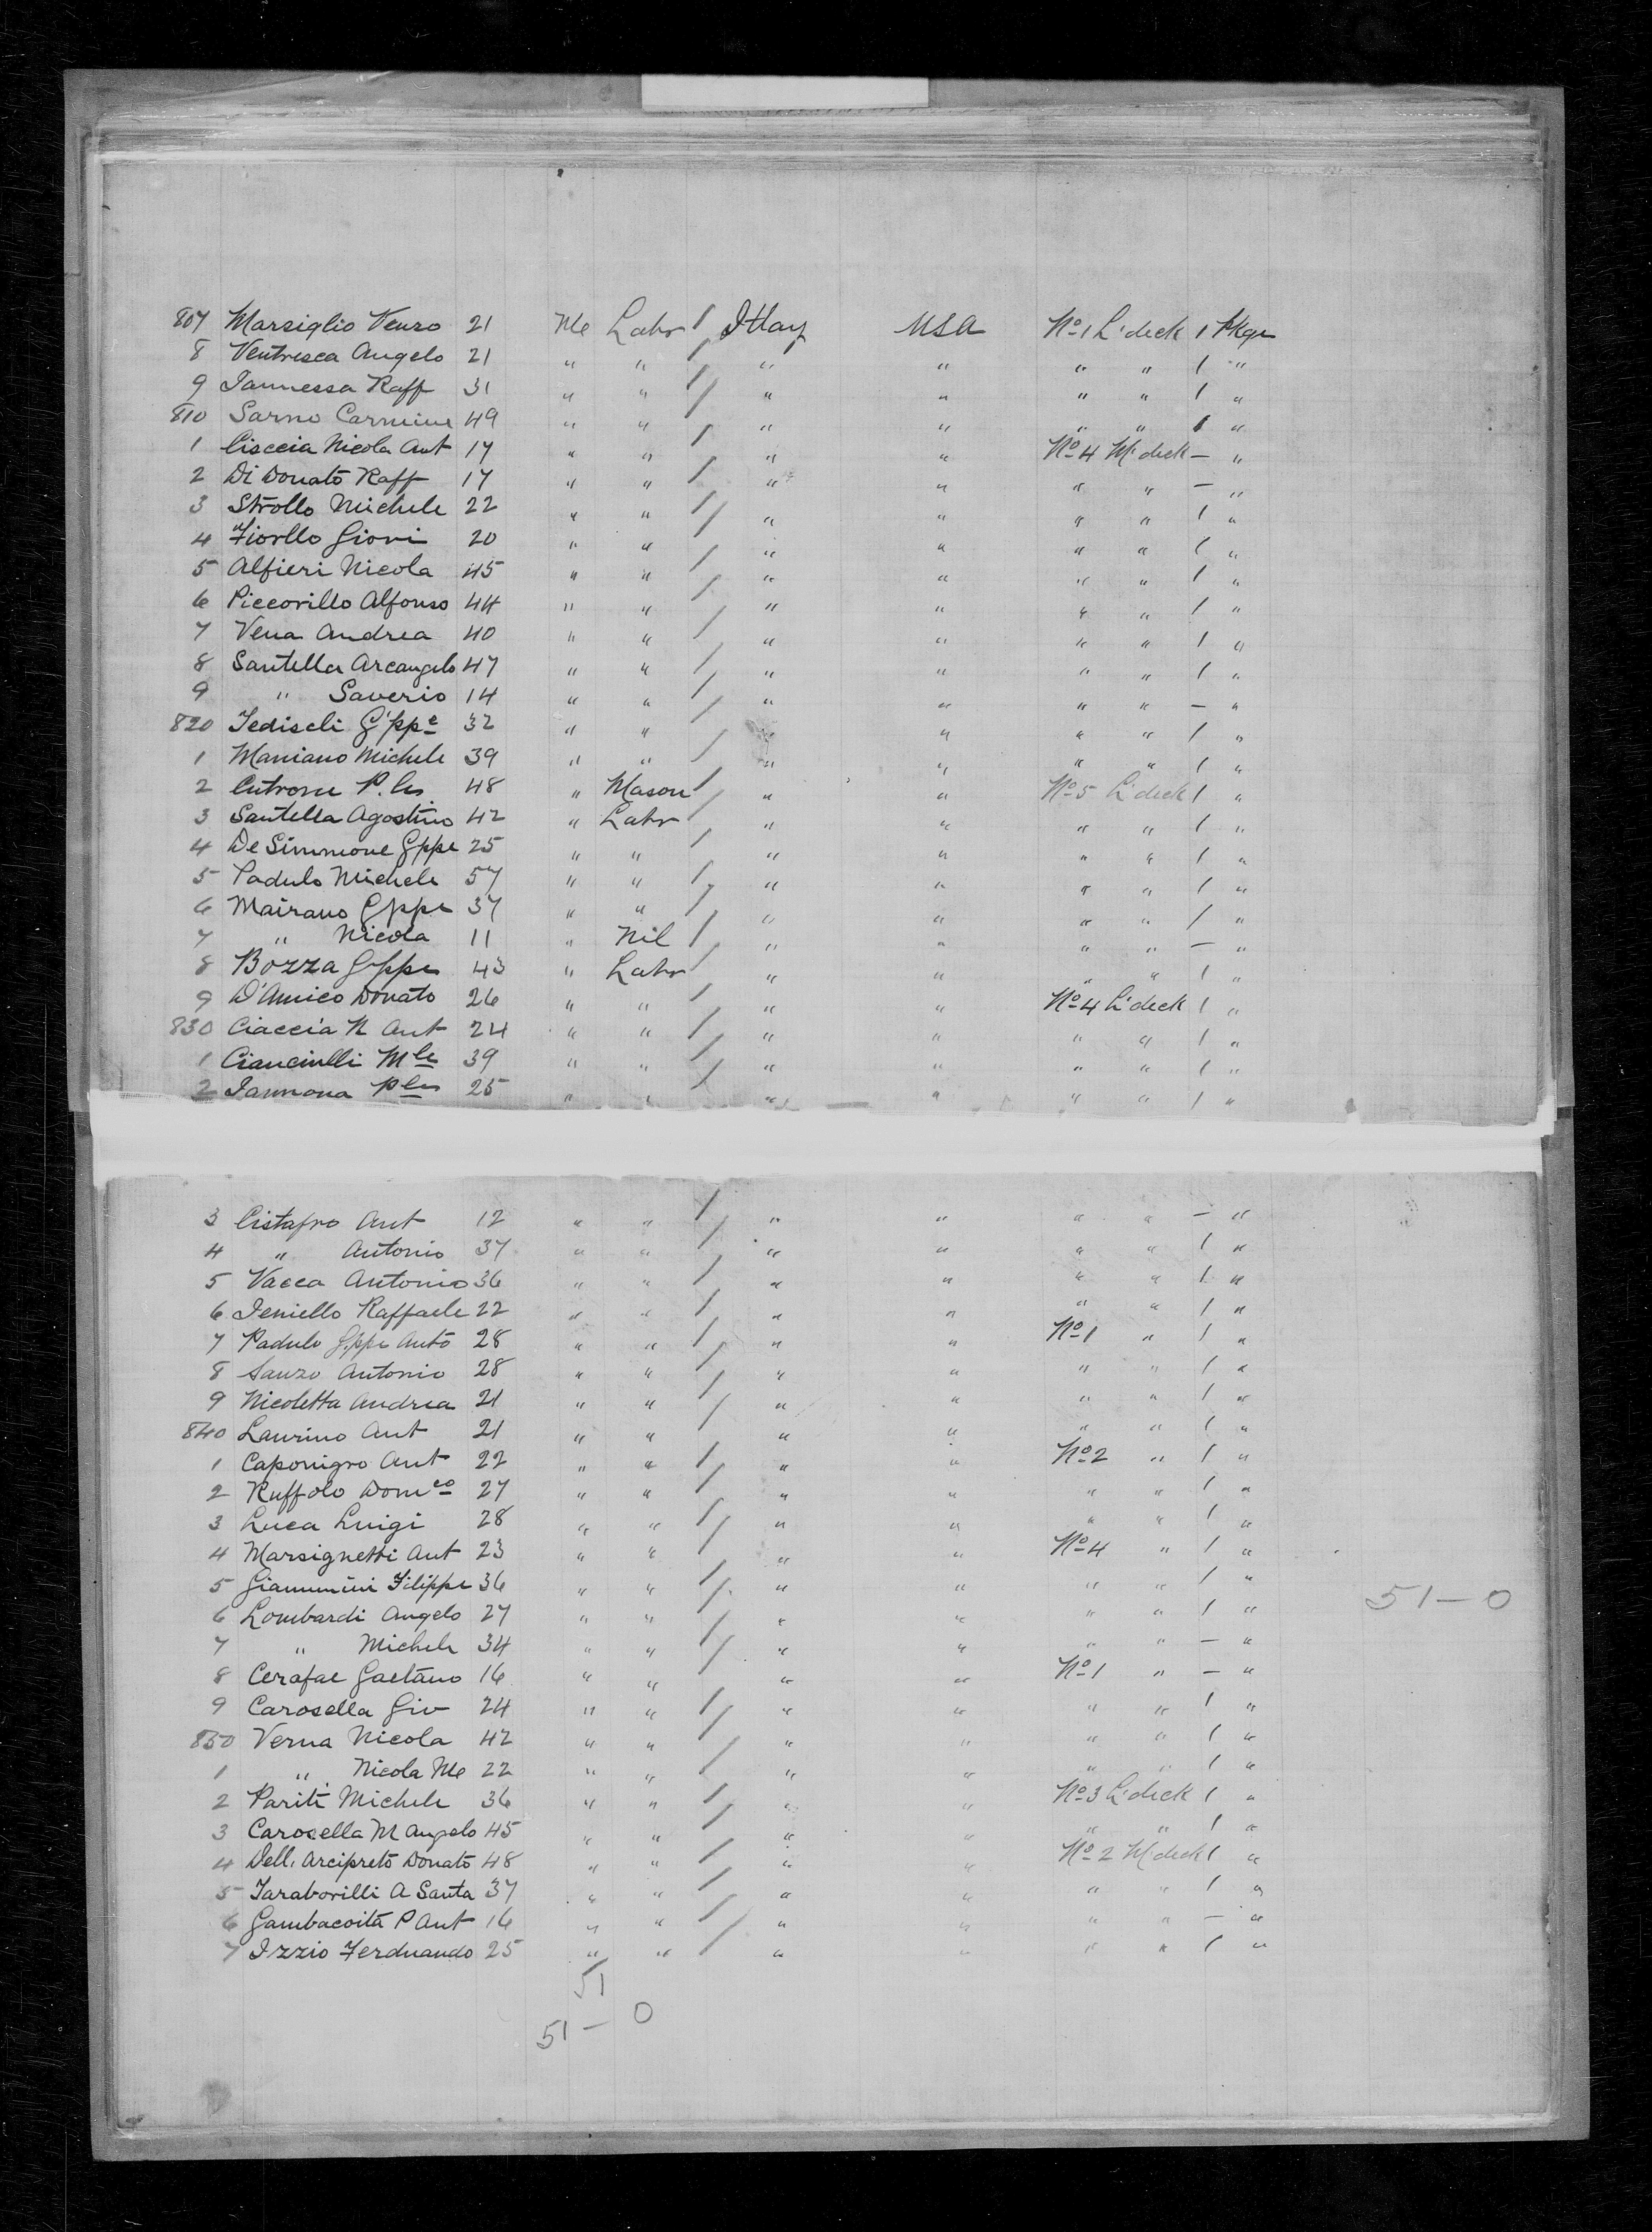 807 Marsiglio Venzo 21 Me Labr / Itlay USA No 1 L'deck 1 Pkge
8 Ventresca Angelo 21 " " / " " " " 1 "
9 Iannessa Raff 31 " " / " " " " 1 "
810 Sarno Carmine 49 " " / " " " " 1 "
1 Cisccia Nicola Ant 17 " " / " " No 4 M'deck — "
2 Di Donato Raff 17 " " / " " " " — "
3 Strollo Michele 22 " " / " " " " 1 "
4 Fiorllo Giovi 20 " " / " " " " 1 "
5 Alfieri Nicola 45 " " / " " " " 1 "
6 Piccorillo Alfonso 44 " " / " " " " 1 "
7 Vena Andrea 40 " " / " " " " 1 "
8 Santella Arcangelo 47 " " / " " " " 1 "
9 " Saverio 14 " " / " " " " — "
820 Tediscli G'ppe 32 " " / " " " " 1 "
1 Maniano Michele 39 " " / " " " " 1 "
2 Cutrone P. 48 " Mason / " " No 5 L'deck 1 "
3 Santella Agostino 42 " Labr / " " " " 1 "
4 De Simmone Gppe 25 " " / " " " " 1 "
5 Padulo Michele 57 " " / " " " " 1 "
6 Mairano Gppe 37 " " / " " " " 1 "
7 " Nicola 11 " Nil / " " " " — "
8 Bozza Gppe 43 " Labr / " " " " 1 "
9 D'Amico Donato 26 " " / " " No 4 L'deck 1 "
830 Ciaccia N Ant 24 " " / " " " " 1 "
1 Cianciulli Mle 39 " " / " " " " 1 "
2 Iannona 25 " " / " " " " 1 "
3 Cistafro Ant 12 " " / " " " " — "
4 " Antonio 37 " " / " " " " 1 "
5 Vacca Antonio 36 " " / " " " " 1 "
6 Ieniello Raffaele 22 " " / " " " " 1 "
7 Padulo Gppe Anto 28 " " / " " No 1 " 1 "
8 Sanzo Antonio 28 " " / " " " " 1 "
9 Nicoletta Andrea 21 " " / " " " " 1 "
840 Laurino Ant 21 " " / " " " " 1 "
1 Caponigro Ant 22 " " / " " No 2 " 1 "
2 Ruffolo Domco 27 " " / " " " " 1 "
3 Luca Luigi 28 " " / " " " " 1 "
4 Marsignetti Ant 23 " " / " " No 4 " 1 "
5 Giammini Filippe 36 " " / " " " " 1 " 51 — 0
6 Lombardi Angelo 27 " " / " " " " 1 "
7 " Michele 34 " " / " " " " — "
8 Cerafae Gaetano 16 " " / " " No 1 " — "
9 Carosella Giv 24 " " / " " " " 1 "
850 Verna Nicola 42 " " / " " " " 1 "
1 " Nicola Me 22 " " / " " " " 1 "
2 Pariti Michele 36 " " / " " No 3 L'deck 1 "
3 Carosella M Angelo 45 " " / " " " " 1 "
4 Dell. Arcipreto Donato 48 " " / " " No 2 M'deck 1 "
5 Taraborilli A Santa 37 " " / " " " " 1 "
6 Gambacoita P Ant 16 " " / " " " " — "
7 Izzio Ferdnando 25 " " / " " " " 1 "
51
51 — 0